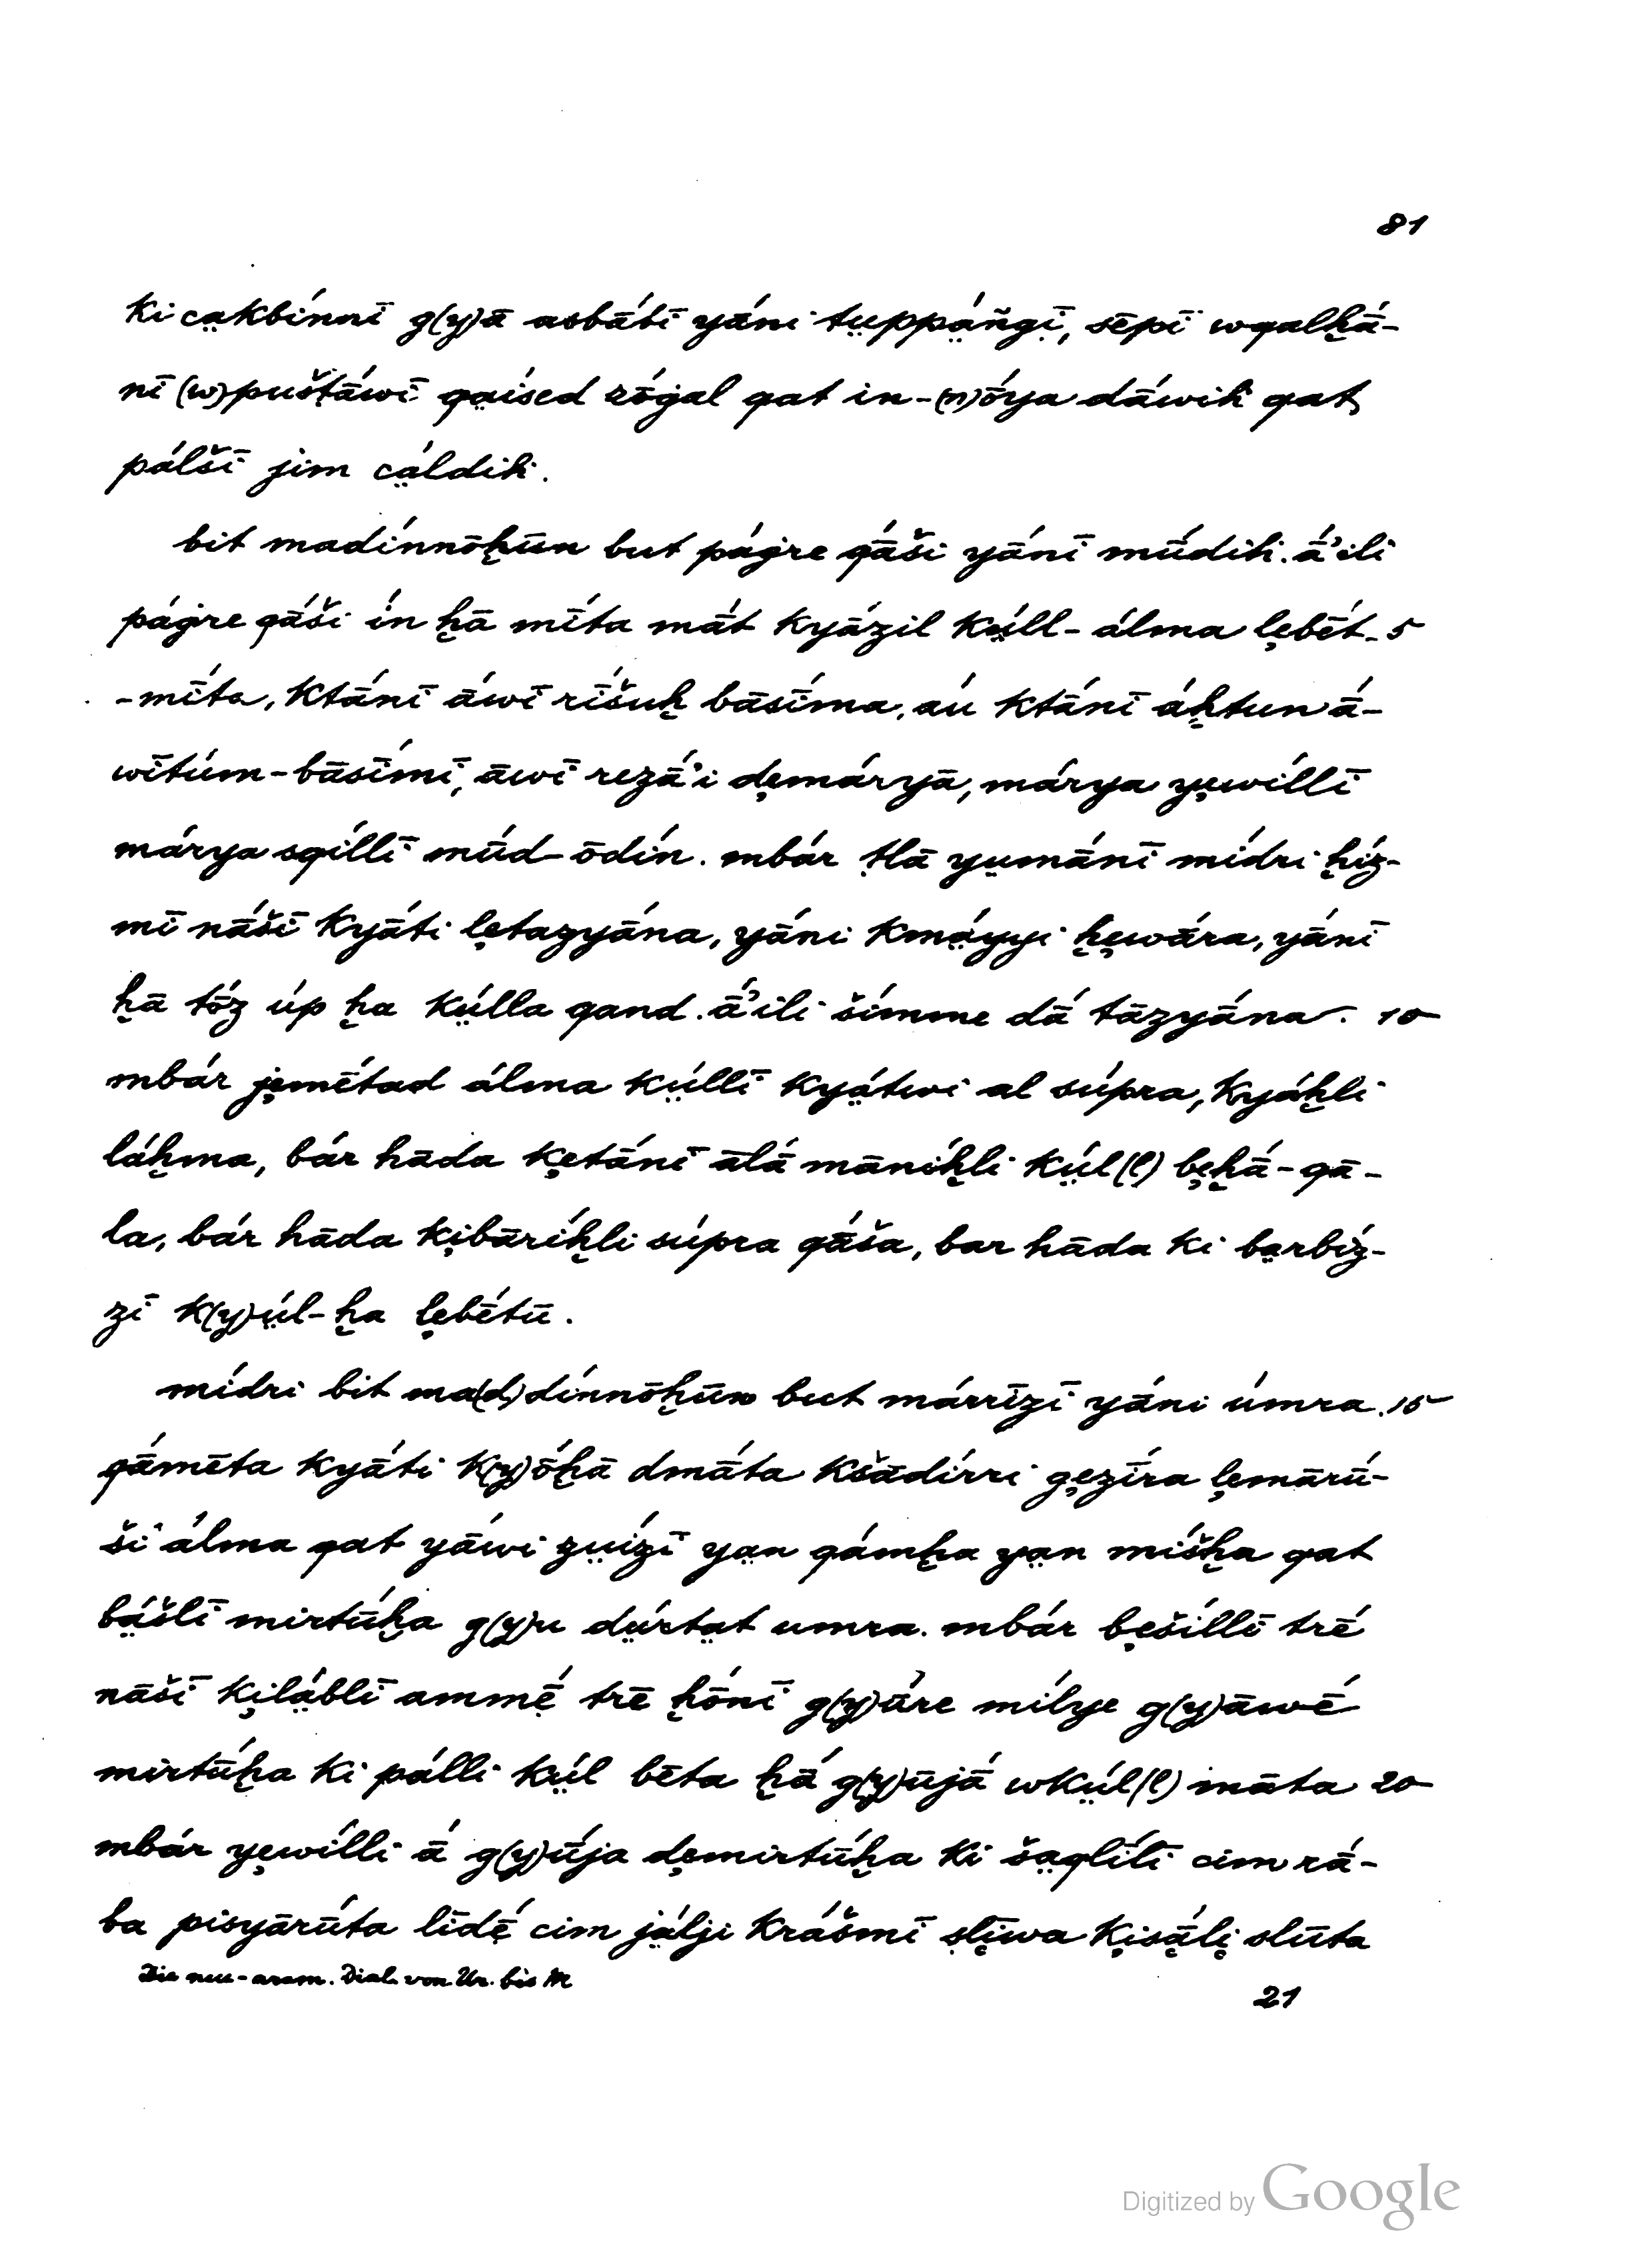 81
ki ca̤kbínnī g(y)ā asbā́bī yā́ni tṳppä́ñgī, sēpī wqalḫā́-
nī (w)puštā́wī qa̤ísed zógal qat in-(n)ṓya dā́wih qat
pálšī jim cá̤ldih.
bit madínnōḫūn but págre qā́ši yā́nī mūdih. ā́'ili
págre qā́ši ín ḫā mī́ta mā́t kyā́zil kṳ́ll-álma lẹbḗt- 5
-mī́ta, ktā́nī ā́wī rī́šuḫ bāsī́ma, aú ktā́nī áḫtun ā́-
wītúm-bāsī́mī, āwī rezā́'i dẹmáryā, márya yẹwíllī
márya sqíllī mū́d-ōdín. mbár ṭlā yṳmā́nī mídri ḫíz-
mī nā́šī kyā́ti lẹtazyā́na, yā́ni kmá̤yyi ḫẹwā́ra, yā́nī
ḫā tṓz úp ḫa kṳ́lla qand. ā́'ili šímme dā́ tāzyā́na. 10
mbár jẹmḗtad álma kṳ́llī kyá̤twi al súpra, kyáḫli
láḫma, bár hāda kẹtā́nī ālā́ māníḫli kṳ́l(l) bẹḫā́-qā-
la, bár hāda kịbāríḫli súpra qā́ša, bar hāda ki ba̤rbíz-
zī k(y)ṳ́l-ḫa lẹbḗtū.
mídri bit ma(d)dínnōḫūn but márrīzī yā́ni úmra. 15
qā́mēta kyā́ti k(y)ṓḫā dmā́ta kšādírri gẹzī́ra lẹmārū́-
šī álma qat yā́wi zṳízī ya̤n qámḫa ya̤n míšḫa qat
bá̤šlī mirtū́ḫa g(y)u dṳ́rta̤t umra. mbár bẹšíllī trḗ
nāšī kịlá̤blī ammẹ́ trē ḫónī g(y)ū́re mílye g(y)āwḗ
mirtū́ḫa ki pálli kṳ́l bēta ḫā́ g(y)ūjā́ wkṳ́l(l) māta 20
mbár yẹwílli ā́ g(y)ū́ja dẹmirtū́ḫa ki ša̤qlī́lī cim rā́-
ba pisyārū́ta līdẹ́ cim já̤lji krášmī slīwa kịsā́lị slūta
Die neu-aram. Dial. von Ur. bis M
21
Digitized by Google